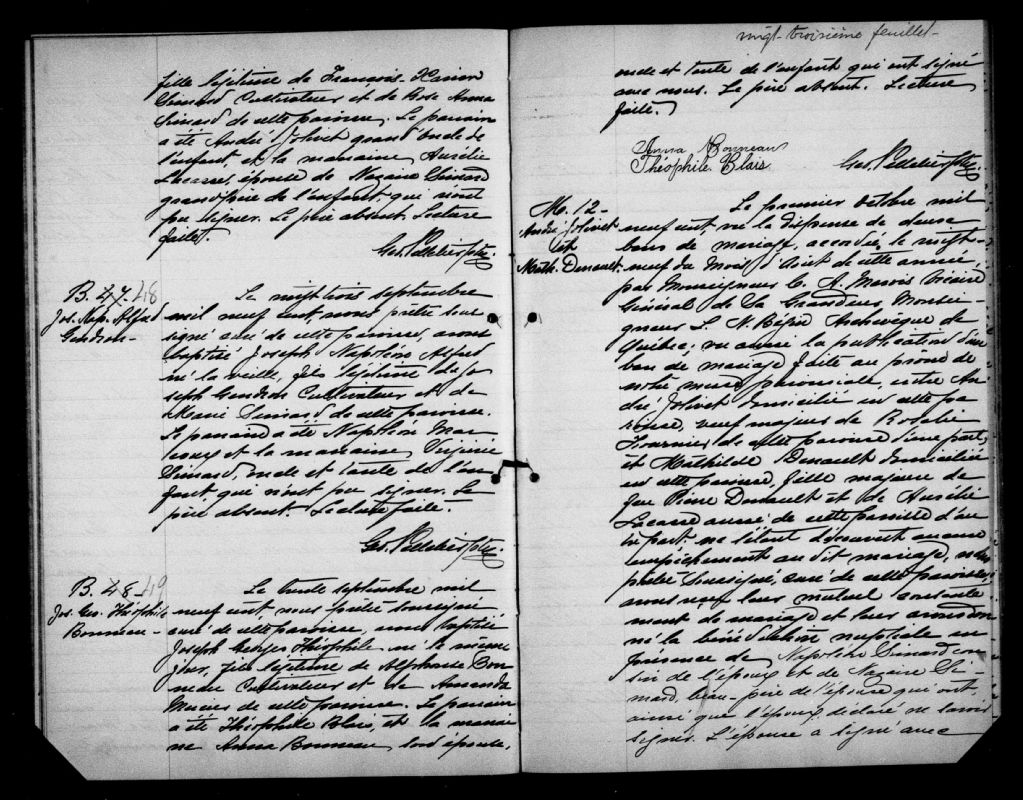 fille légitime de François-Xavier
Simard Cultivateur et de Rose Anna
Simard de cette paroisse. Le parrain
a été André Jolivet grand oncle de
l'enfant et la marraine Aurélie
Lacasse, épouse de Nazaire Simard
grand père de l'enfant qui n'ont
pu signer. Le père absent. Lecture
faite.
Geo. Pelletier Ptre.
B. 47. 48
Jos. Nap. Alfred
Gendron-
Le vingt trois septembre
mil neuf cent, nous prêtre sous
signé curé de cette paroisse, avons
baptisé Joseph Napoléon Alfred
né la veille, fils légitime de Jo
seph Gendron Cultivateur et de
Marie Simard de cette paroisse.
Le parrain a été Napoléon
et la marraine Virginie
Simard, oncle et tante de l'en
fant qui n'ont pu signer. Le
père absent. Lecture faite.
Geo. Pelletier Ptre.
B. 48- 49
Jos. Geo. Théophile
Bonneau-
Le trente septembre mil
neuf cent, nous prêtre soussigné
curé de cette paroisse, avons baptisé
Joseph Georges Théophile né le même
jour, fils légitime de Alphonse Bon
neau Cultivateur et de Amanda
de cette paroisse. Le parrain
a été Théophile Blais, et la marrai
ne Anna Bonneau son épouse,
vingt-troisième feuillet-
oncle et tante de l'enfant qui ont signé
avec nous. Le père absent. Lecture
faite.
Anna Bonneau
Théophile Blais
Geo. Pelletier Ptre.
M. 12-
André Jolivet
et
Math. Denault.
Le premier octobre mil
neuf cent vu la dispense de deux
bans de mariage, accordée, le vingt-
neuf du mois d'août de cette année,
par Monseigneur C. A. Marois Vicaire
Général de Sa Grandeur Monsei-
gneur L. N. Bégin Archevêque de
Québec; vu aussi la publication d'un
ban de mariage faite au prône de
notre messe paroissiale, entre An
dré Jolivet domicilié en cette pa
roisse, veuf majeur de Rosalie
Fournier, de cette paroisse d'une part,
et Mathilde Denault domiciliée
en cette paroisse, fille majeure de
feu Pierre Denault et de Aurélie
Lacasse aussi de cette paroisse d'au
tre part, ne s'étant découvert aucun
empêchement au dit mariage, nous
prêtre soussigné, curé de cette paroisse,
avons reçu leur mutuel consente
ment de mariage et leur avons don
né la bénédiction nuptiale en
présence de Napoléon Simard cou
sin de l'époux et de Nazaire Si-
mard, beau-père de l'épouse qui ont,
ainsi que l'époux, déclaré ne savoir
signer. L'épouse a signé avec